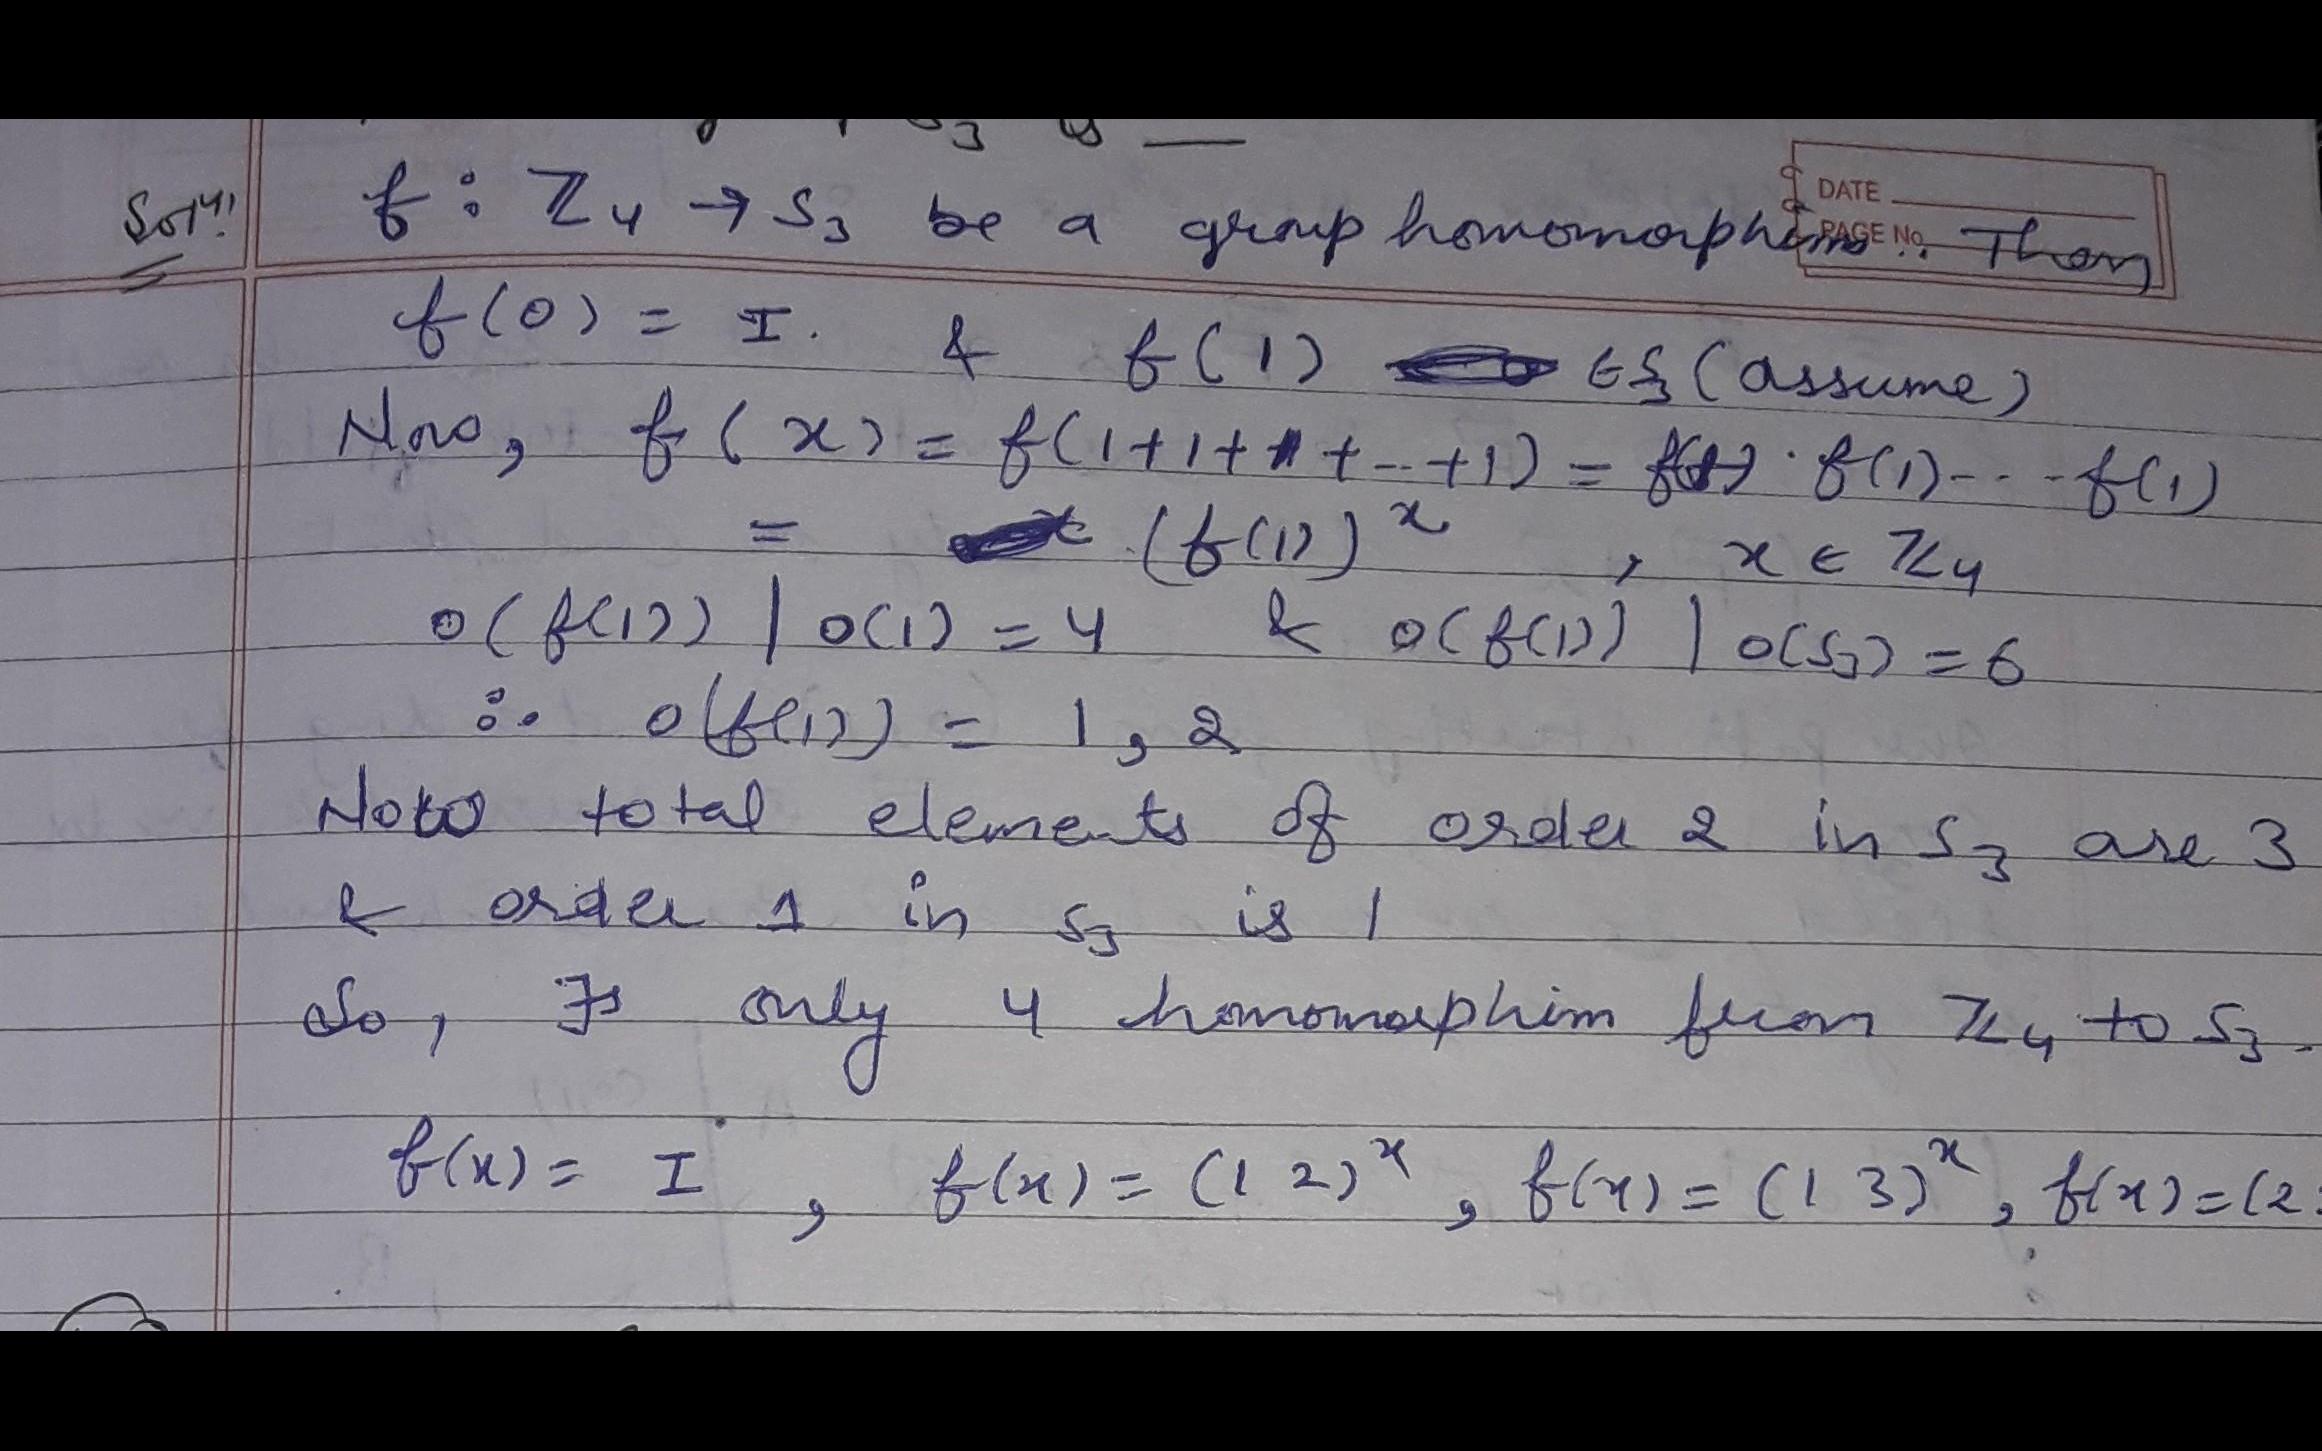 S3 is __
DATE
PAGE No.
Solⁿ: f : ℤ₄ → S₃ be a group homomorphism. Then
f(0) = I. & f(1) ∈ S₃ (assume)
Now, f(x) = f(1+1+1+...+1) = f(1)·f(1)----f(1)
= (f(1))ˣ , x ∈ ℤ₄
o(f(1)) | o(1) = 4 & o(f(1)) | o(S₃) = 6
∴ o(f(1)) = 1, 2
Now total elements of order 2 in S₃ are 3
& order 1 in S₃ is 1
So, ∃s only 4 homomorphim from ℤ₄ to S₃.
f(x) = I , f(x) = (1 2)ˣ , f(x) = (1 3)ˣ , f(x) = (2